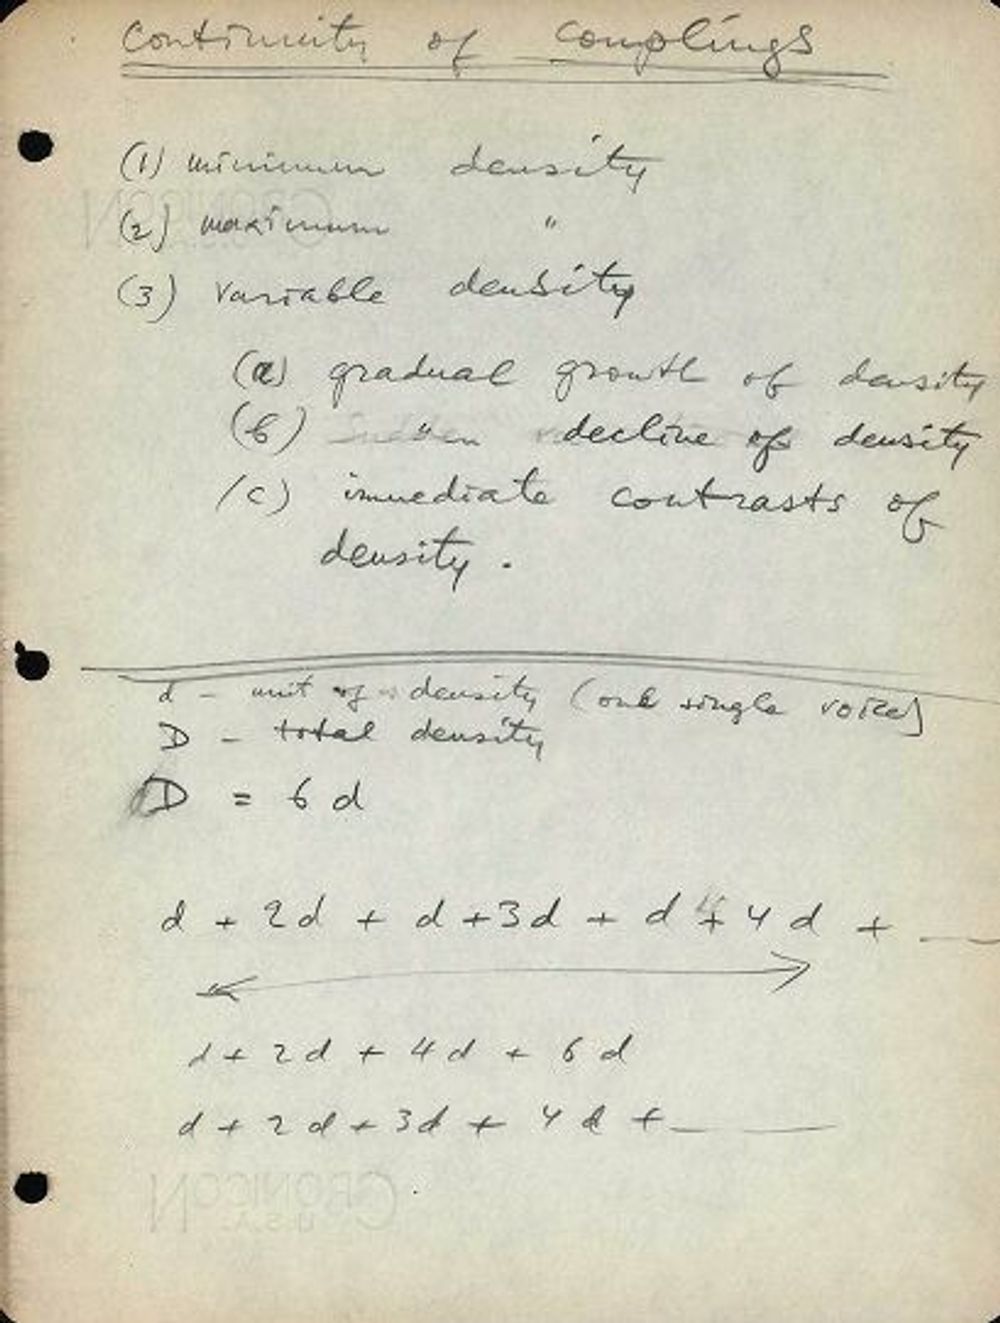 Continuity of Couplings
(1) minimum density
(2) maximum "
(3) variable density
(a) gradual growth of density
(b) " decline of density
(c) immediate contrasts of
density.
d - unit of density (one single voice)
D - total density
D = 6 d
d + 2d + d + 3d + d + 4d + __
d + 2d + 4d + 6d
d + 2d + 3d + 4d + ____
CRONICON
U.S.A.